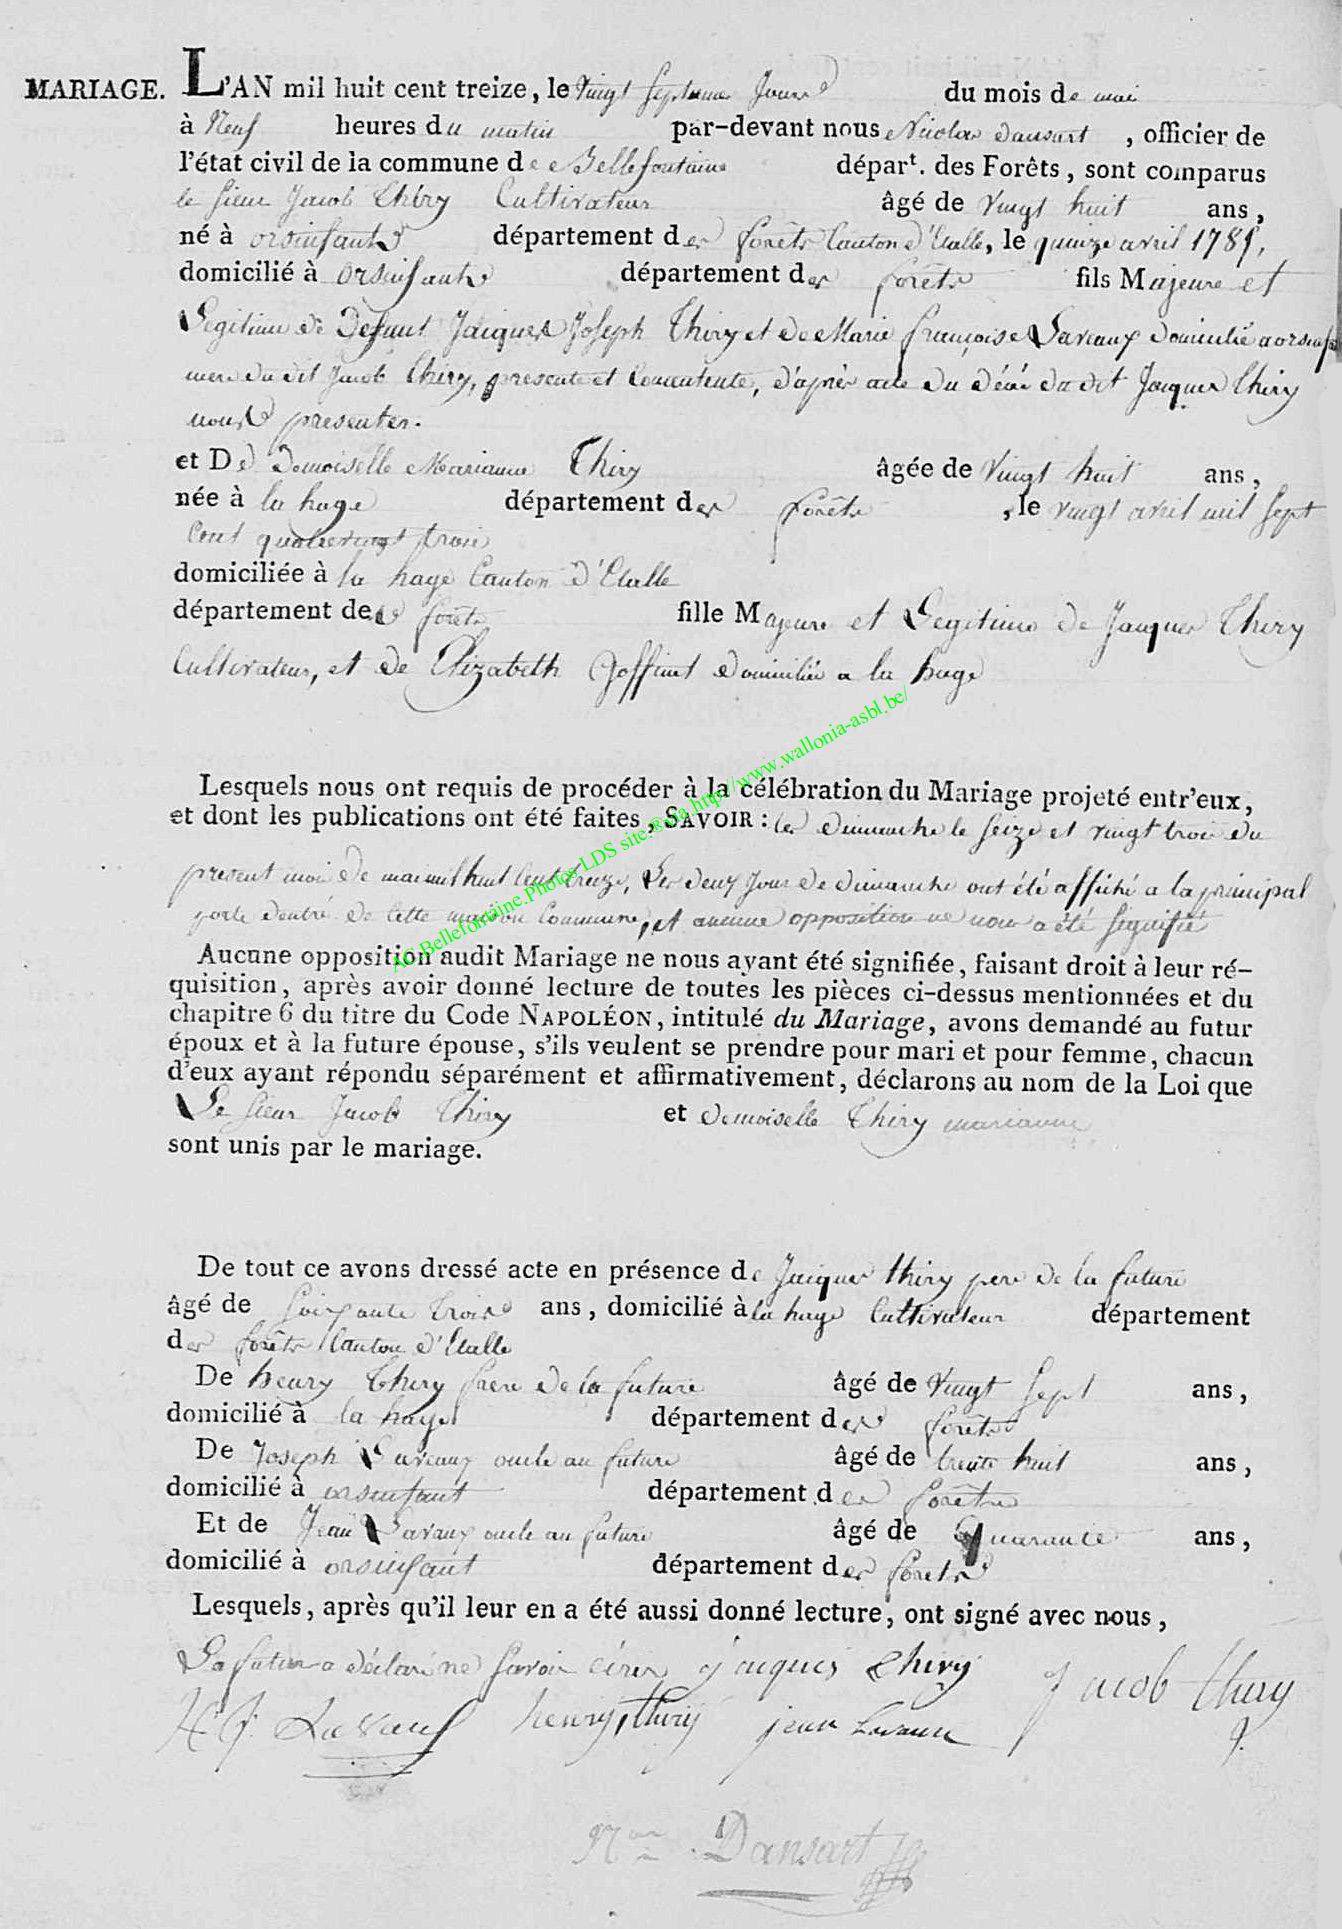 MARIAGE. L'AN mil huit cent treize, le vingt septieme Jour du mois de mai
à Neuf heures du matin par-devant nous Nicolas dansart, officier de
l'état civil de la commune de Bellefontaine départ. des Forêts, sont comparus
le sieur Jacob Thiry Cultivateur âgé de vingt huit ans,
né à orsinfant département des forêts Canton d'Etalle, le quinze avril 1785,
domicilié à orsinfant département des forêts fils Majeure et
Legitime de Defunt Jacques Joseph Thiry et de Marie françoise Lavaux domicilié a orsinf
mere du dit Jacob Thiry, presente et Concentente, d'après acte du décé du dit Jacques Thiry
nous presenter.
et De Demoiselle Marianne Thiry âgée de vingt huit ans,
née à la hage département des forêts, le vingt avril mil sept
cent quatrevingt trois
domiciliée à la hage Canton d'Etalle
département des forêts fille Majeure et Legitime de Jacques Thiry
Cultivateur, et de Elizabeth Joffint domiciliée a la hage
Lesquels nous ont requis de procéder à la célébration du Mariage projeté entr'eux,
et dont les publications ont été faites, SAVOIR : les dimanche le seize et vingt trois du
present moi de mai mil huit Cent treize, Les deux Jour de dimanche ont été affiché a la principal
porte dentré de Cette maison Commune, et aucune opposition ne nous a été signifié
AC.Bellefontaine.Photos LDS site.®via.http://www.wallonia-asbl.be/
Aucune opposition audit Mariage ne nous ayant été signifiée, faisant droit à leur ré-
quisition, après avoir donné lecture de toutes les pièces ci-dessus mentionnées et du
chapitre 6 du titre du Code NAPOLÉON, intitulé du Mariage, avons demandé au futur
époux et à la future épouse, s'ils veulent se prendre pour mari et pour femme, chacun
d'eux ayant répondu séparément et affirmativement, déclarons au nom de la Loi que
Le sieur Jacob Thiry et demoiselle Thiry marianne
sont unis par le mariage.
De tout ce avons dressé acte en présence de Jacques thiry pere de la future
âgé de soixante trois ans, domicilié à la hage Cultivateur département
des forêts Canton d'Etalle
De henry Thiry frere de la future âgé de vingt sept ans,
domicilié à la hage département des forêts
De Joseph Lavaux oncle au future âgé de trente huit ans,
domicilié à orsinfant département des forêts
Et de Jean Lavaux oncle au future âgé de Quarante ans,
domicilié à orsinfant département des forêts
Lesquels, après qu'il leur en a été aussi donné lecture, ont signé avec nous,
La future a déclaré ne savoir écrire jacques thiry Jacob thiry
H J. Lavaux henry thiry jean Lavaux
Nas Dansart